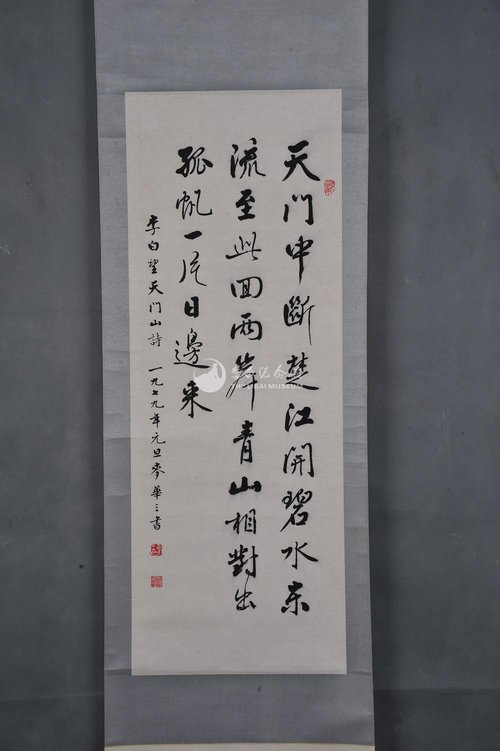 天門中斷楚江開碧水東
流至此回兩岸青山相對出
孤帆一片日邊来
李白望天門山詩 一九七九年元旦麥華三書
LIBAI MUSEUM